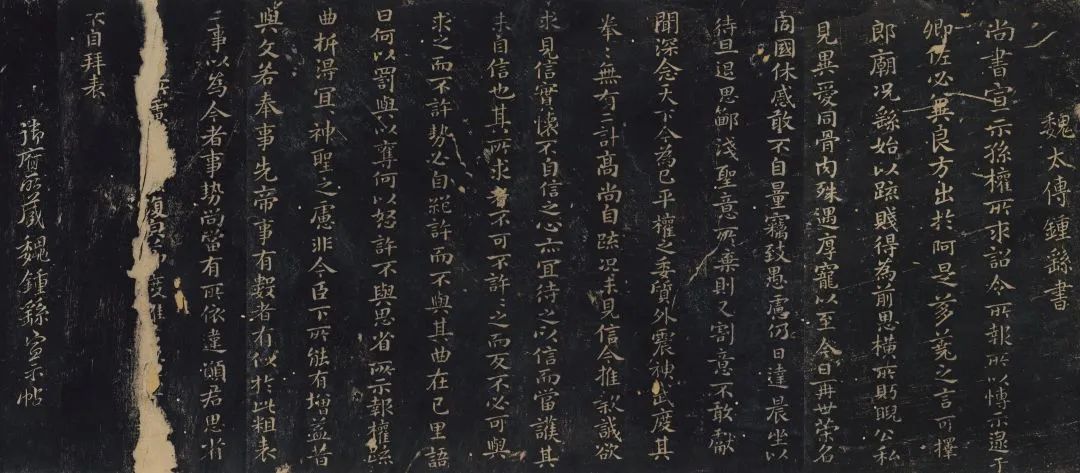 魏太傅鍾繇書
尚書宣示孫權所求詔令所報所以博示逮于
卿佐必冀良方出於阿是芻蕘之言可擇
郎廟況繇始以疏賤得為前恩橫所眄睨公私
見異愛同骨肉殊遇厚寵以至今日再世榮名
同國休慼敢不自量竊致愚慮仍日達晨坐以
待旦退思鄙淺聖意所棄則又割意不敢獻
聞深念天下今為已平權之委質外震神武度其
拳〻無有二計高尚自疏況未見信今推款誠欲
求見信實懷不自信之心亦宜待之以信而當護其
未自信也其所求者不可不許〻之而反不必可與
求之而不許勢必自絕許而不與其曲在己里語
曰何以罰與以奪何以怒許不與思省所示報權疏
曲折得宜神聖之慮非今臣下所能有增益昔
與文若奉事先帝事有數者有似於此粗表
二事以為今者事勢尚當有所依違願君思省
復 度唯
不自拜表
府所藏魏鍾繇宣示帖